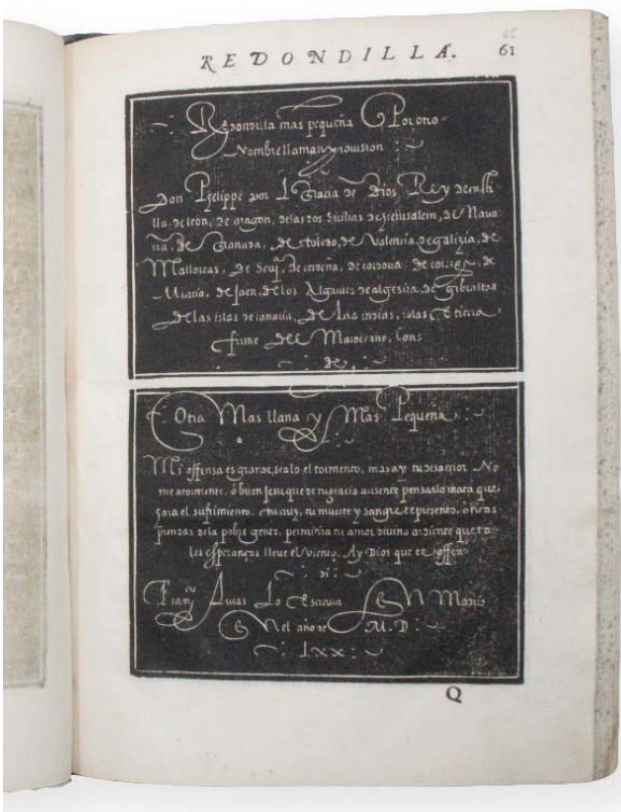 65
REDONDILLA. 61
Redondilla mas pequeña Por otro
Nombre llaman Provision
Don Phelippe por la Gracia de Dios Rey de casti
lla, de leon, de aragon, de las dos sicilias de Jierusalem, de Nava
rra, de Granada, de toledo, de Valencia, de galizia, de
Mallorcas, de Sevilla, de cordova de de
Murcia, de Jaen, de los Algarves de algezira, de gibraltar
de las islas de canaria, de Las indias, islas E tierra
firme del Mar oceano, Cons
de
Otra Mas llana y Mas Pequeña
Mi offensa es grande, sealo el tormento, mas ay tu desamor No
me atormente, o buen Jesu que de tu gracia ausente pensarlo hara que
el sufrimiento. tu cruz, tu muerte y sangre te presento,
de la pobre gente, permitira tu amor divino ardiente que ta
les esperanças lleve el viento. Ay Dios que te offen
di
Franco Lucas Lo Escrevia EN Madrid
EN el año de M.D
Lxx
Q